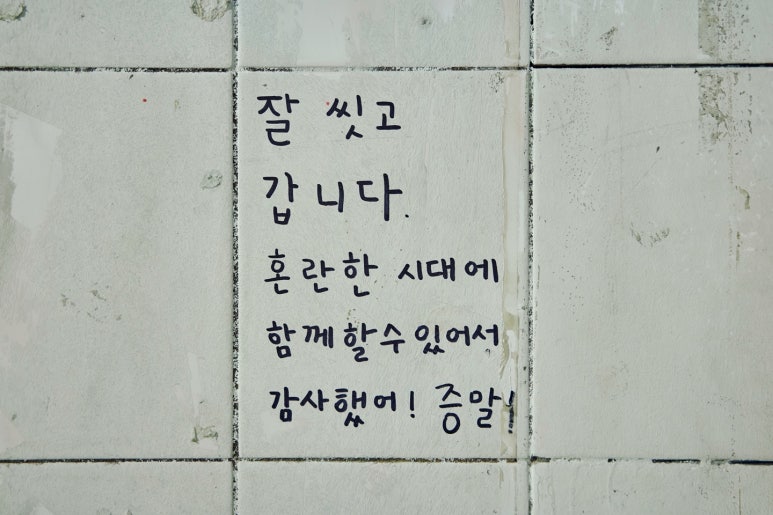 잘 씻고
갑니다.
혼란한 시대에
함께할수있어서
감사했어! 증말!